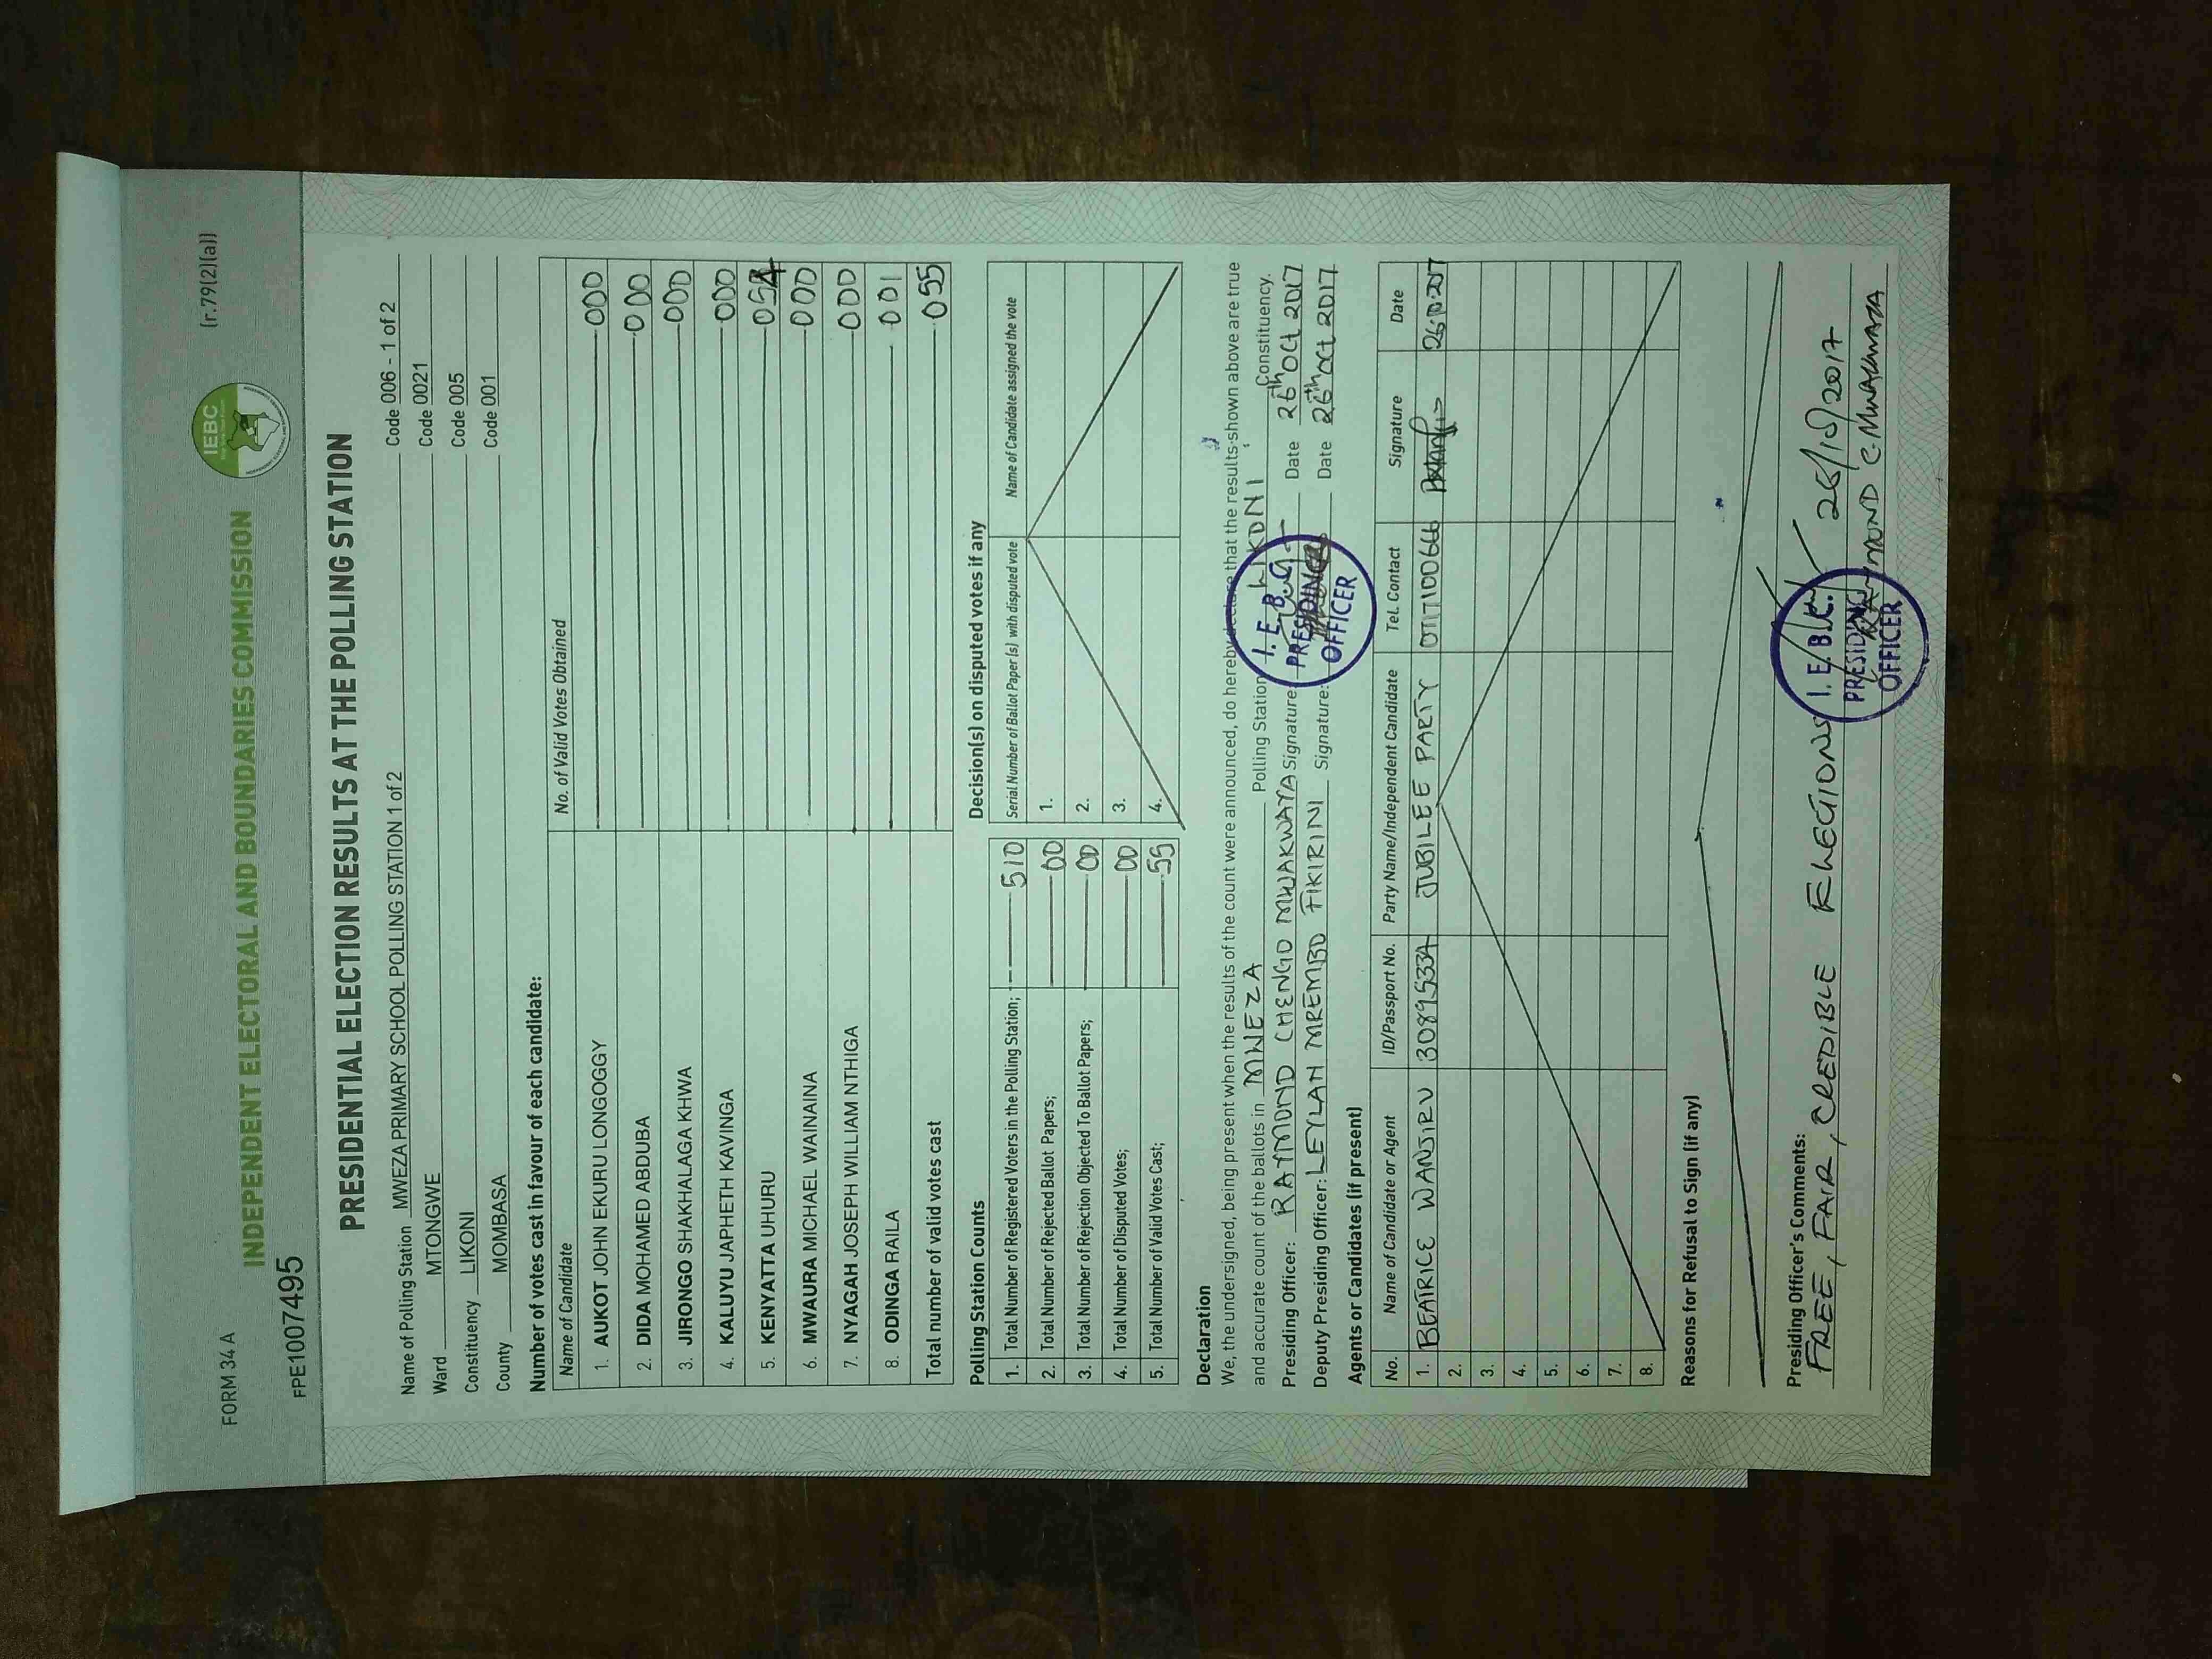 FORM 34 A
(r.79(2)(a))
INDEPENDENT ELECTORAL AND BOUNDARIES COMMISSION
IEBC
FPE1007495
PRESIDENTIAL ELECTION RESULTS AT THE POLLING STATION
Name of Polling Station MWEZA PRIMARY SCHOOL POLLING STATION 1 of 2 Code 006 - 1 of 2
Ward MTONGWE Code 0021
Constituency LIKONI Code 005
County MOMBASA Code 001
Number of votes cast in favour of each candidate:
Name of Candidate No. of Valid Votes Obtained
1. AUKOT JOHN EKURU LONGOGGY 000
2. DIDA MOHAMED ABDUBA 000
3. JIRONGO SHAKHALAGA KHWA 000
4. KALUYU JAPHETH KAVINGA 000
5. KENYATTA UHURU 054
6. MWAURA MICHAEL WAINAINA 000
7. NYAGAH JOSEPH WILLIAM NTHIGA 000
8. ODINGA RAILA 001
Total number of valid votes cast 055
Polling Station Counts
1. Total Number of Registered Voters in the Polling Station; 510
2. Total Number of Rejected Ballot Papers; 00
3. Total Number of Rejection Objected To Ballot Papers; 00
4. Total Number of Disputed Votes; 00
5. Total Number of Valid Votes Cast; 55
Decision(s) on disputed votes if any
Serial Number of Ballot Paper (s) with disputed vote Name of Candidate assigned the vote
1.
2.
3.
4.
Declaration
We, the undersigned, being present when the results of the count were announced, do hereby declare that the results shown above are true
and accurate count of the ballots in MWEZA Polling Station LIKONI Constituency.
Presiding Officer: RAYMOND CHENGO MWAKWAYA Signature: Date 26th Oct 2017
Deputy Presiding Officer: LEYLAH MREMBO FIKIRINI Signature: Date 26th Oct 2017
I.E.B.C.
PRESIDING
OFFICER
Agents or Candidates (if present)
No. Name of Candidate or Agent ID/Passport No. Party Name/Independent Candidate Tel. Contact Signature Date
1. BEATRICE WANJIRU 30895334 JUBILEE PARTY 0717100666 26.10.2017
2.
3.
4.
5.
6.
7.
8.
Reasons for Refusal to Sign (if any)
Presiding Officer's Comments:
FREE, FAIR, CREDIBLE ELEGIONS 26/10/2017
I.E.B.C.
PRESIDING
OFFICER
RAYMOND C. MWAKWAYA